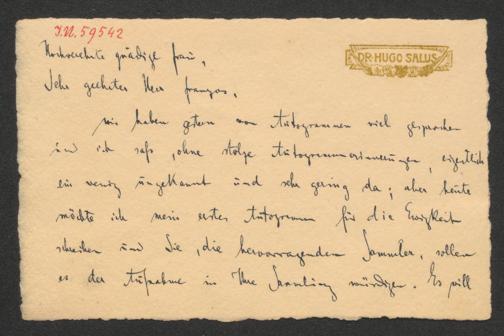 I.N. 59542
DR HUGO SALUS
Hochverehrte gnädige Frau,
Sehr geehrter Herr Franzos,
wir haben gestern von Autogrammen viel gesprochen
und ich saß, ohne stolze Autogrammerinnerungen, eigentlich
ein wenig ungekannt und sehr gering da; aber heute
möchte ich mein erstes Autogramm für die Ewigkeit
schreiben und Sie, die hervorragenden Sammler, sollen
es der Aufnahme in Ihre Sammlung würdigen. Es will